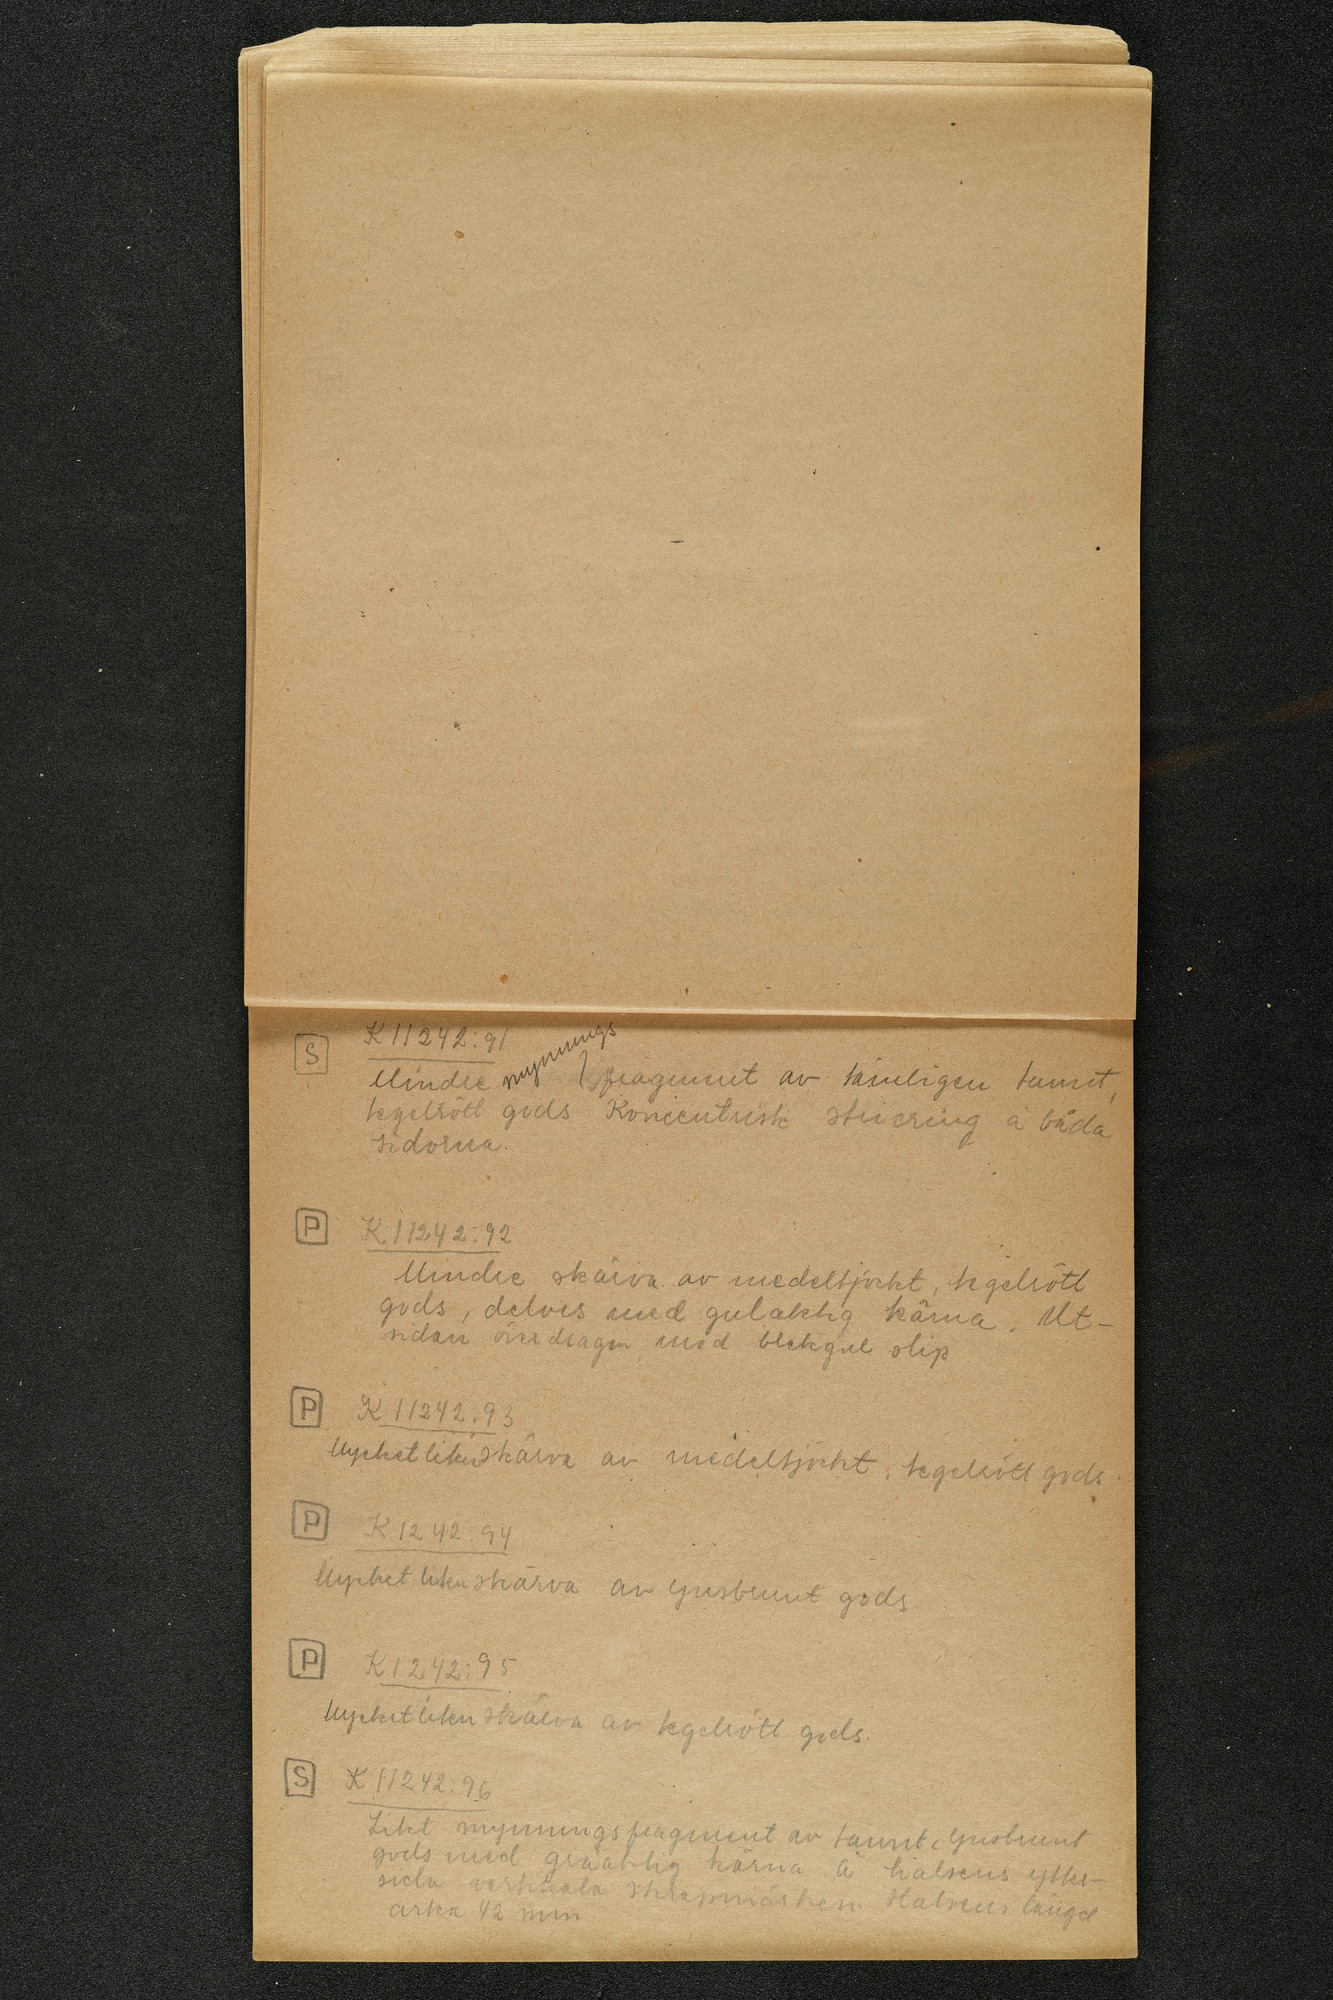 S K 11242:91
Mindre mynnings fragment av tämligen tunnt,
tegelrött gods Koncentrisk striering å båda
sidorna.
P K 11242:92
Mindre skärva av medeltjockt, tegelrött
gods, delvis med gulaktig kärna. Ut-
sidan överdragen med blekgul slip
P K 11242:93
Mycket liten skärva av medeltjockt, tegelrött gods
P K 1242:94
Mycket liten skärva av ljusbrunt gods
P K 1242:95
Mycket liten skärva av tegelrött gods.
S K 11242:96
Litet mynningsfragment av tunnt, ljusbrunt
gods med gråaktig kärna Å halsens ytter-
sida vertikala skrapmärken Halsens längd
cirka 42 mm